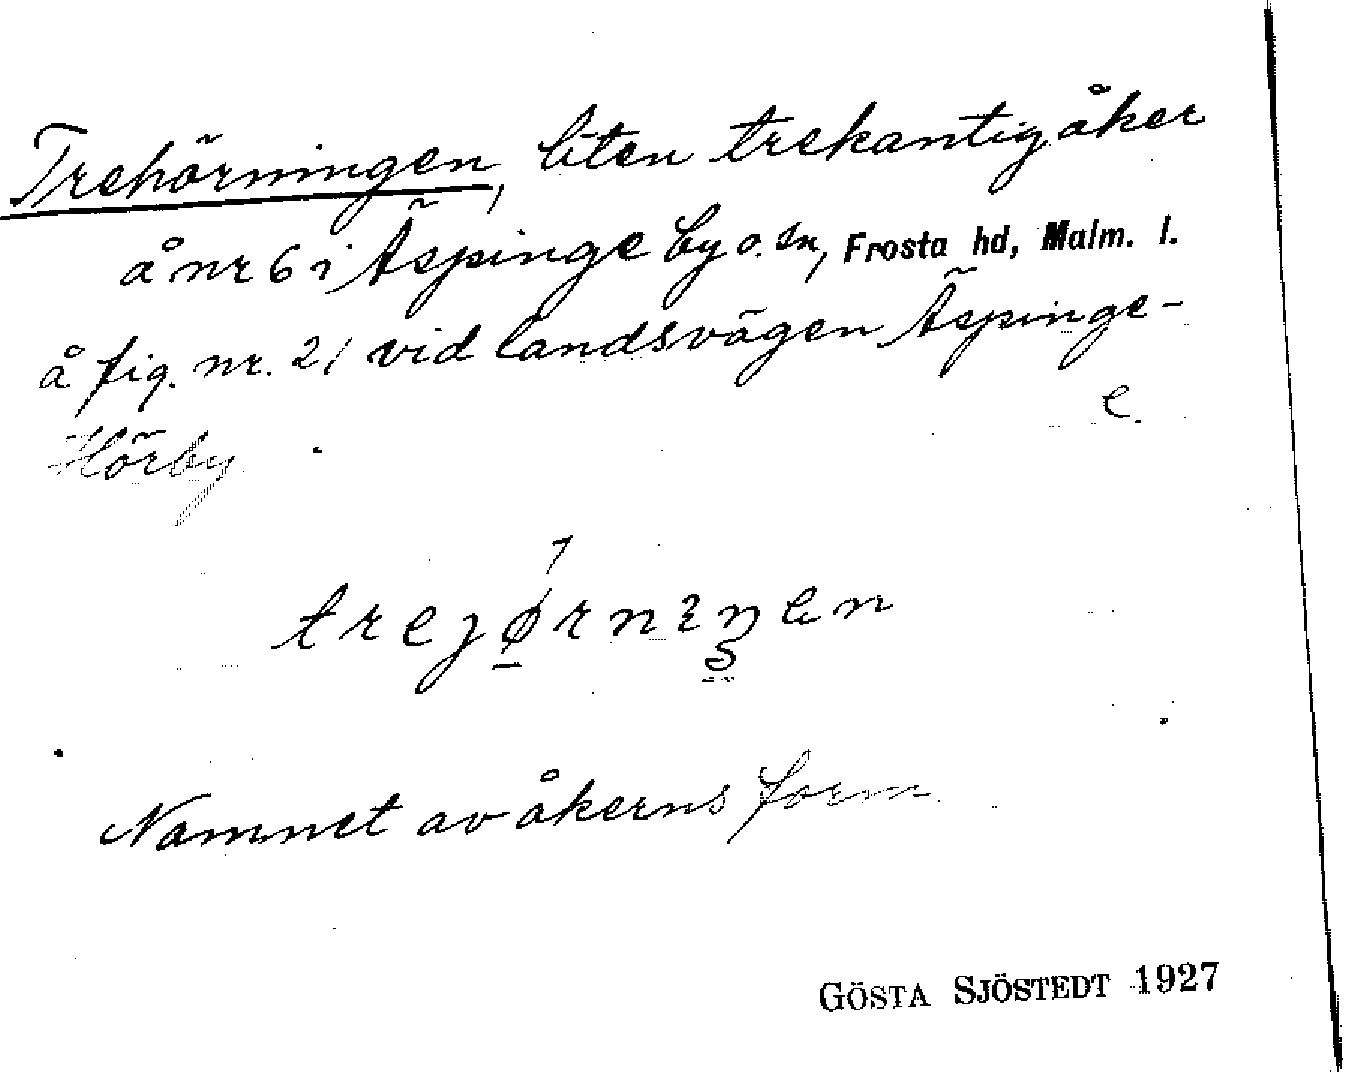 Trehörningen, liten trekantig åker
å nr 6 i Äspinge by o. sn, Frosta hd, Malm. l.
å fig. nr. 21 vid landsvägen Äspinge-
e.
Hörby
Namnet av åkerns form
GÖSTA SJÖSTEDT 1927